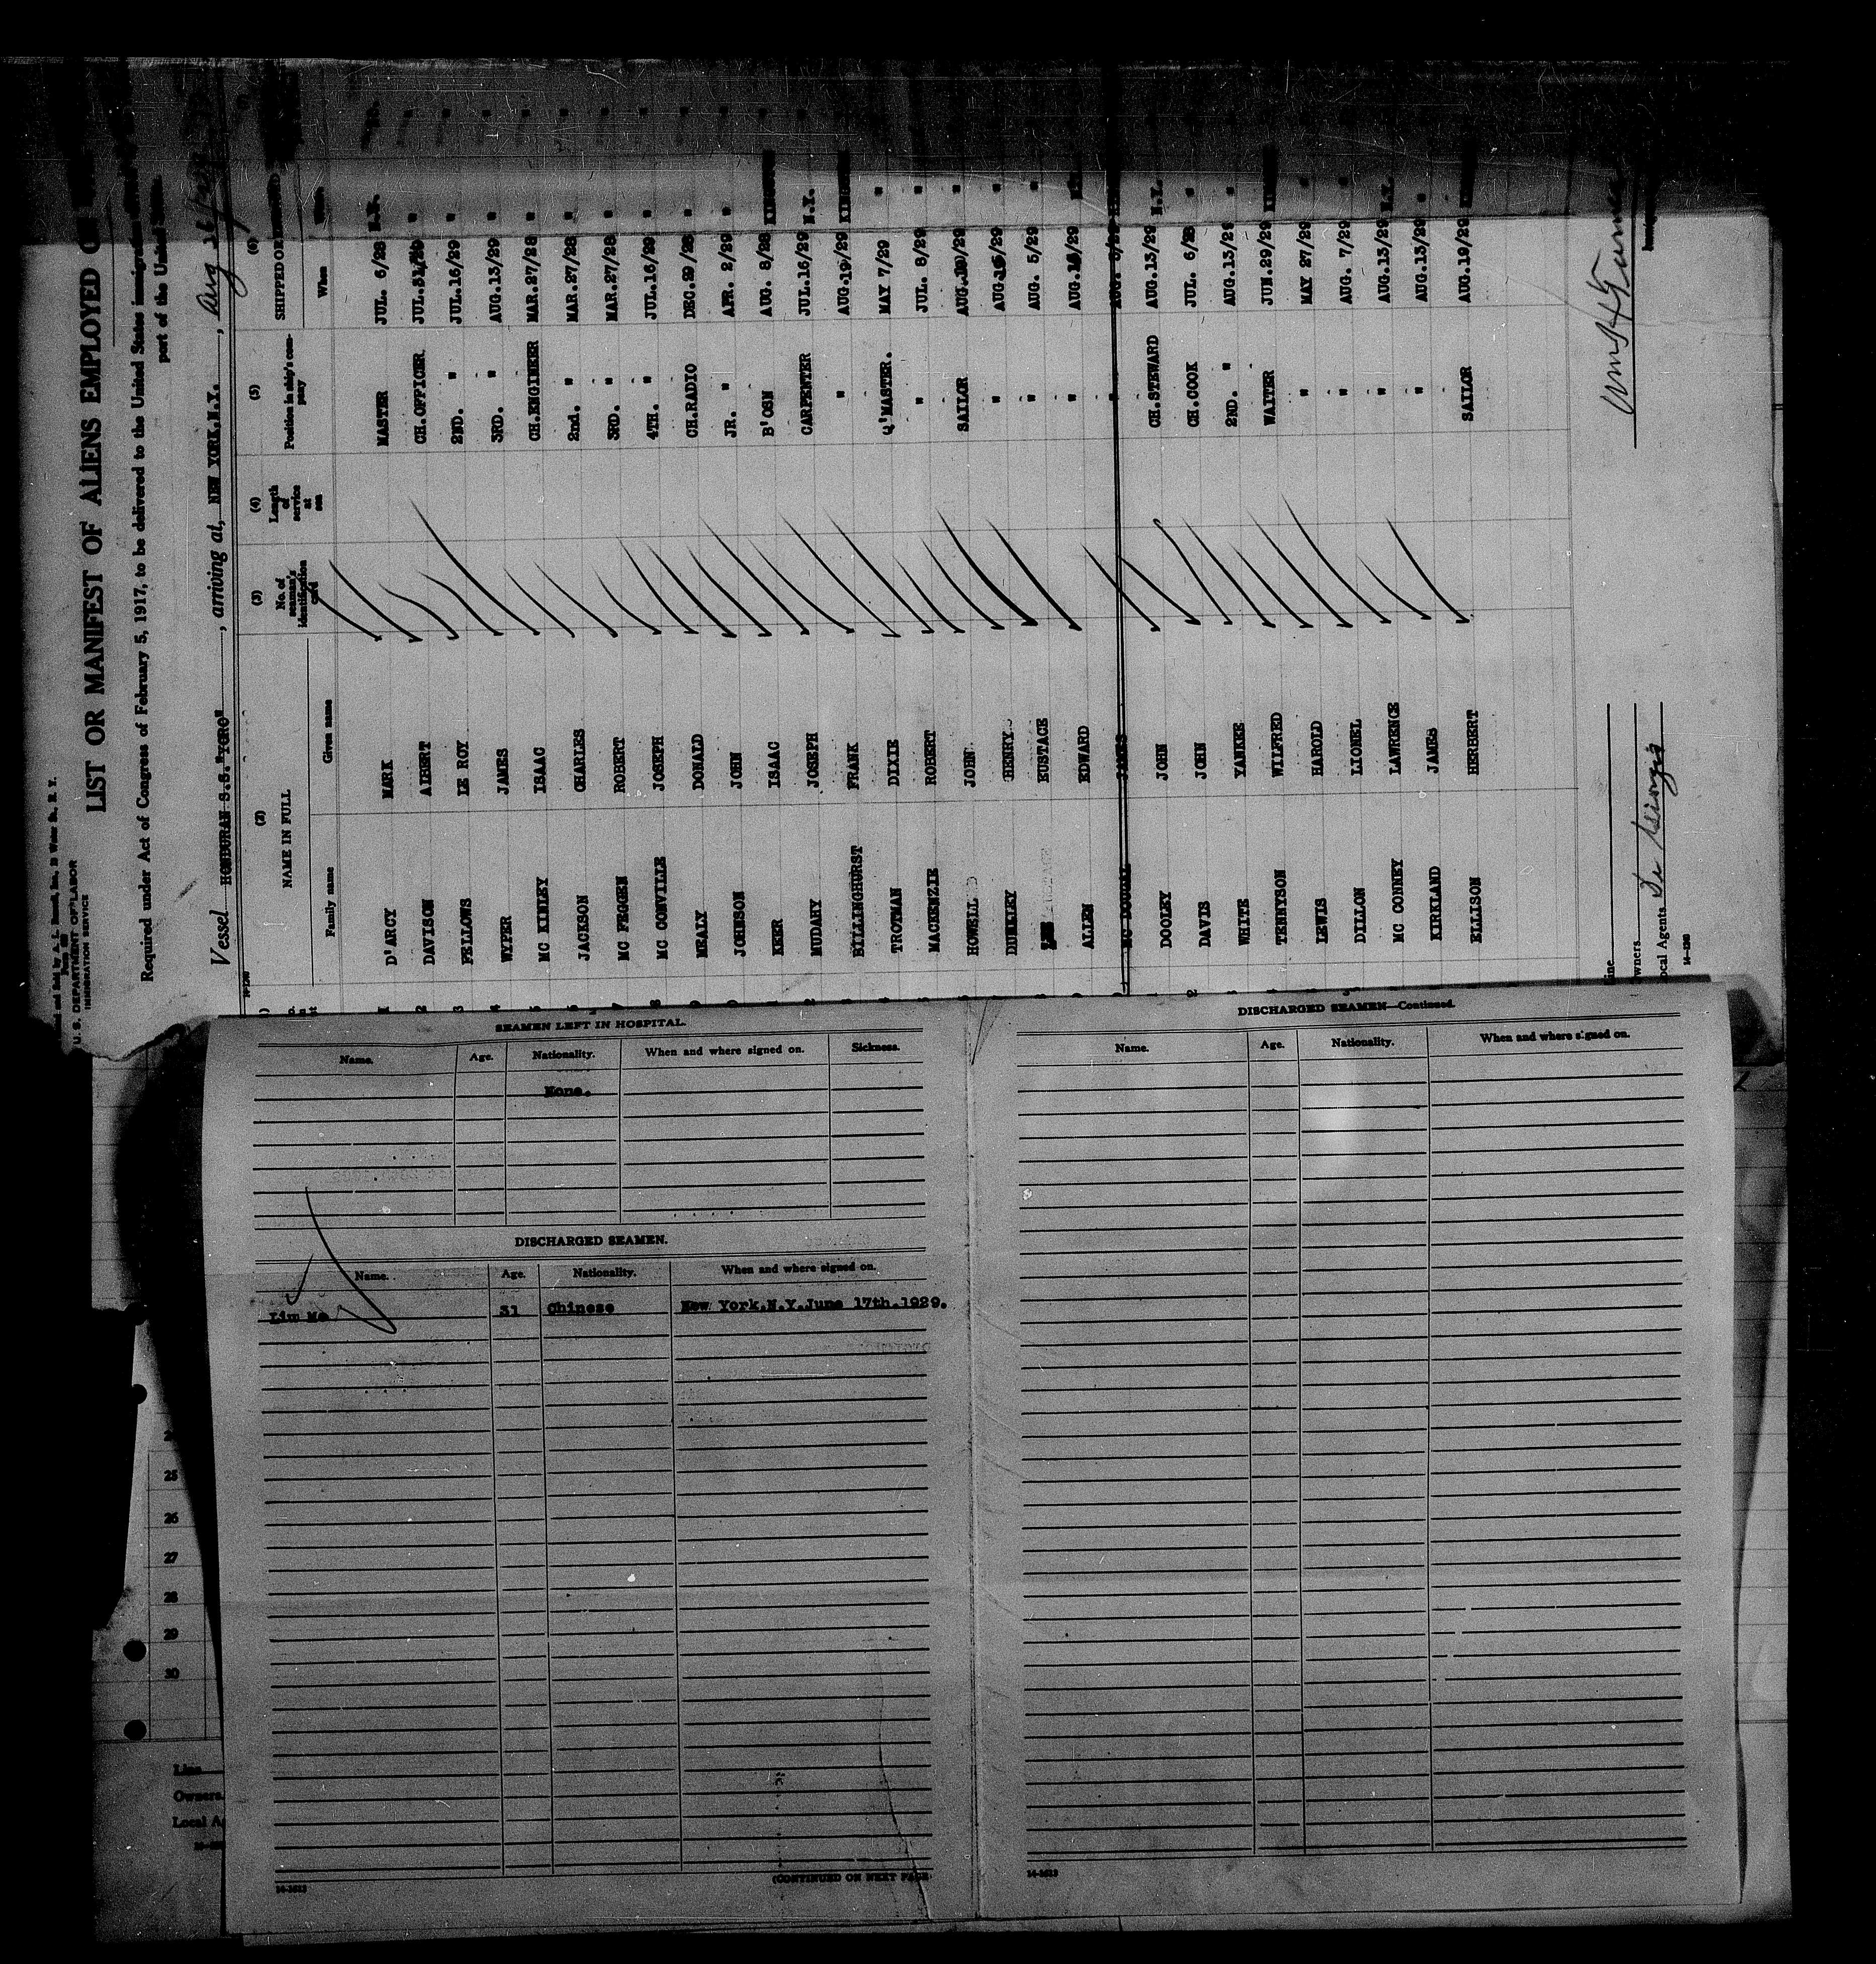 Form 689
U. S. DEPARTMENT OF LABOR
IMMIGRATION SERVICE
LIST OR MANIFEST OF ALIENS EMPLOYED ON
Required under Act of Congress of February 5, 1917, to be delivered to the United States immigration
port of the United States
Vessel HONDURAN S.S. "YORO", arriving at, NEW YORK,N.Y., Aug 26
(2) (3) (4) (5) (6)
NAME IN FULL No. of seaman's identification card Length of service at sea Position in ship's company SHIPPED OR ENGAGED
Family name Given name When Where
1 D'ARCY MARK MASTER JUL. 6/28 N.Y.
2 DAVISON ALBERT CH.OFFICER. JUL.31/29 "
3 FELLOWS LE ROY 2ND. " JUL.16/29 "
4 WYPER JAMES 3RD. " AUG.13/29 "
5 MC KINLEY ISAAC CH.ENGINEER MAR.27/28 "
6 JACKSON CHARLES 2nd. " MAR.27/28 "
7 MC FEGGEN ROBERT 3RD. " MAR.27/28 "
8 MC CONVILLE JOSEPH 4TH. " JUL.16/29 "
9 MEALY DONALD CH.RADIO DEC.29/28 "
0 JOHNSON JOHN JR. " APR. 2/29 "
1 KERR ISAAC B'OSN AUG. 8/28 KINGSTON
2 MUDAHY JOSEPH CARPENTER JUL.16/29 N.Y.
3 BILLINGHURST FRANK " AUG.19/29 KINGSTON
4 TROTMAN DIXIE Q'MASTER. MAY 7/29 "
5 MACKENZIE ROBERT " JUL. 8/29 "
6 HOWELL JOHN SAILOR AUG. /29 "
DUNKLEY HENRY " AUG.15/29 "
8 LEE EUSTACE " AUG. 5/29 "
9 ALLEN EDWARD " AUG. /29
MC DOUGAL JAMES " AUG. 6/29
1 DOOLEY JOHN CH.STEWARD AUG.13/29 N.Y.
2 DAVIS JOHN CH.COOK JUL. 6/28 "
3 WHITE YANKEE 2ND. " AUG.13/29 "
4 TENNYSON WILFRED WAITER JUN.29/29
5 LEWIS HAROLD " MAY 27/29 "
DILLON LIONEL " AUG. 7/29 "
MC CONNEY LAWRENCE " AUG.13/29 N.Y.
KIRKLAND JAMES " AUG.13/29 "
ELLISON HERBERT SAILOR AUG.19/29
Line
Owners
Local Agents
14-1240
SEAMEN LEFT IN HOSPITAL.
Name. Age. Nationality. When and where signed on. Sickness.
None.
DISCHARGED SEAMEN.
Name. Age. Nationality. When and where signed on.
31 Chinese New York.N.Y.June 17th.1929.
(CONTINUED ON NEXT PAGE
14-1613
DISCHARGED SEAMEN—Continued.
Name. Age. Nationality. When and where signed on.
14-1613
25
26
27
28
29
30
Line
Owners
Local A